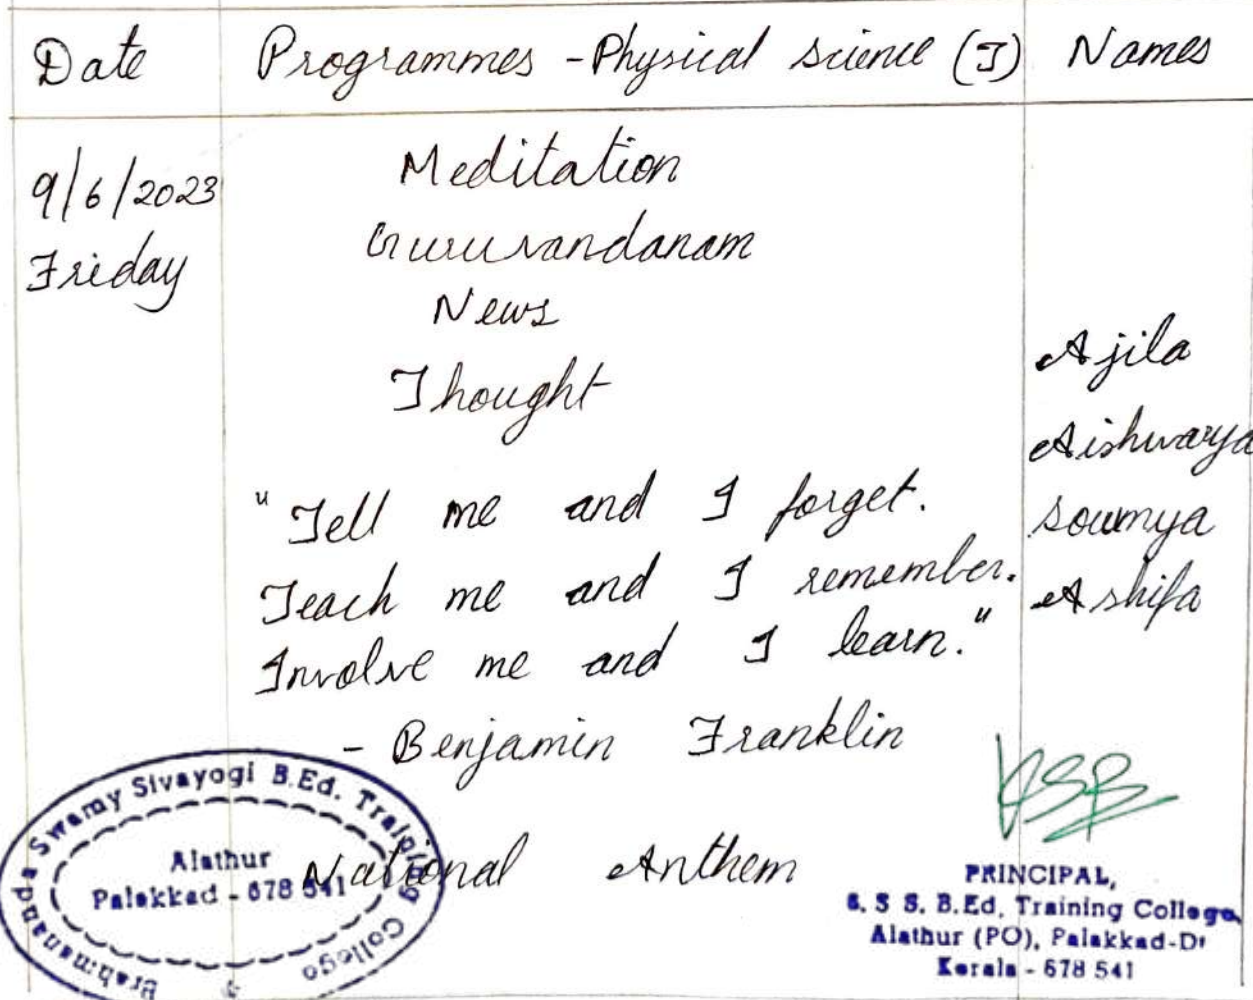 Date Programmes - Physical science (I) Names
9/6/2023
Friday
Meditation
Guruvandanam
News
Thought
"Tell me and I forget.
Teach me and I remember.
Involve me and I learn."
- Benjamin Franklin
National Anthem
Ajila
Aishwarya
Soumya
Ashifa
Brahmananda Swamy Sivayogi B.Ed. Training College
Alathur
Palakkad - 678 541
PRINCIPAL,
B. S S. B.Ed, Training College,
Alathur (PO), Palakkad-Dt
Kerala - 678 541